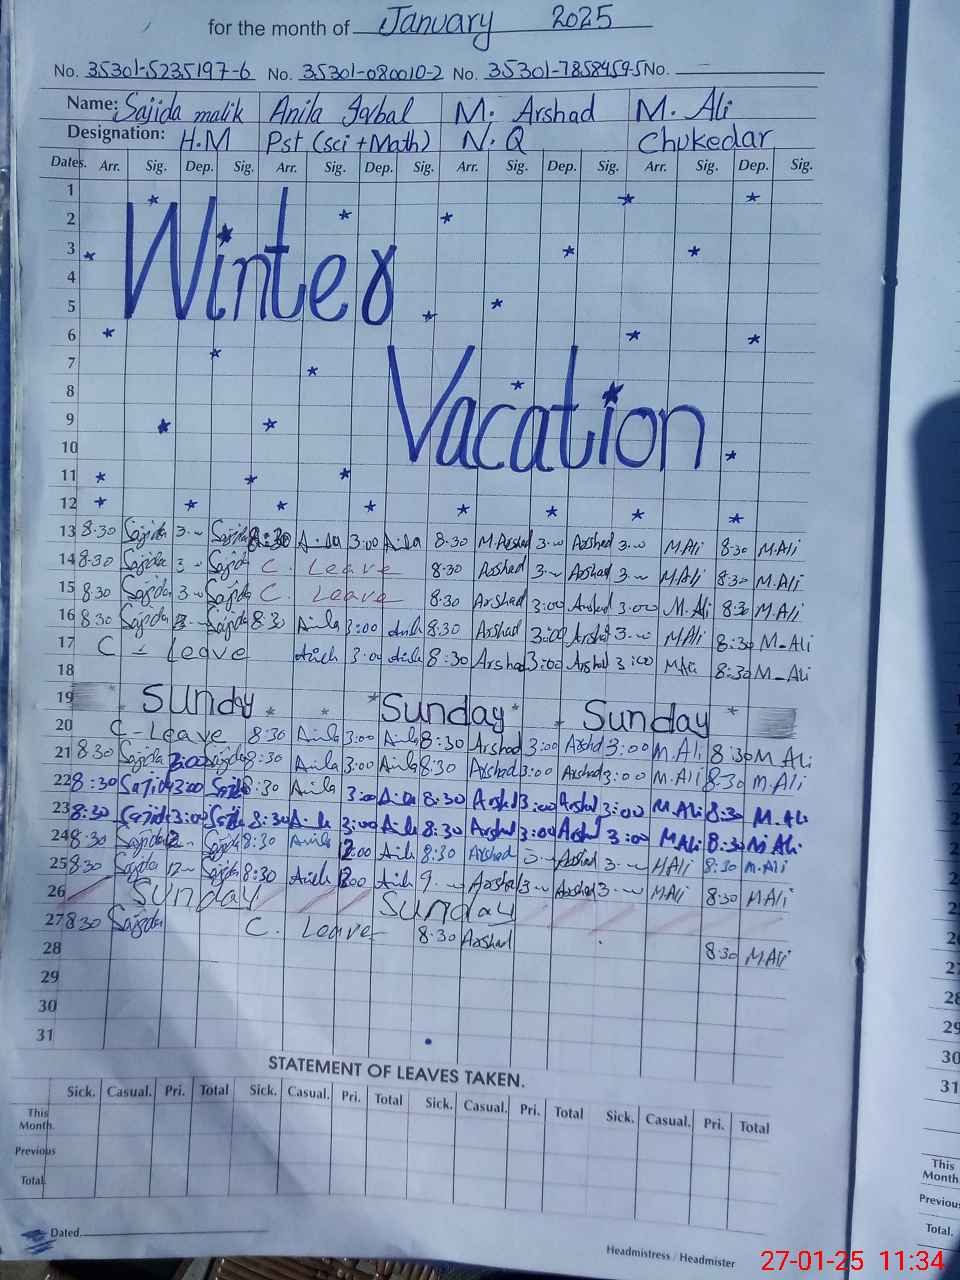 for the month of January 2025
No. 35301-5235197-6 No. 35301-080010-2 No. 35301-7858459-5 No.
Name: Sajida malik Anila Iqbal M. Arshad M. Ali
Designation: H.M Pst (sci + Math) N.Q Chukedar
Dates. Arr. Sig. Dep. Sig. Arr. Sig. Dep. Sig. Arr. Sig. Dep. Sig. Arr. Sig. Dep. Sig.
1
2
3
Winter
4
5
6
7
8
9
Vacation
10
11
12
13 8:30 Sajida 3 Sajida 8:30 Anila 3:00 Anila 8:30 M.Arshad 3 Arshad 3 M.Ali 8:30 M.Ali
14 8:30 Sajida 3 Sajida C. Leave 8:30 Arshad 3 Arshad 3 M.Ali 8:30 M.Ali
15 8:30 Sajida 3 Sajida C. Leave 8:30 Arshad 3:00 Arshad 3:00 M.Ali 8:30 M.Ali
16 8:30 Sajida 3 Sajida 8:30 Anila 3:00 8:30 Arshad 3:00 Arshad 3 M.Ali 8:30 M-Ali
17 C - Leave 3:00 8:30 Arshad 3:00 Arshad 3:00 M.Ali 8:30 M-Ali
18
19 Sunday Sunday Sunday
20 C-Leave 8:30 Anila 3:00 Anila 8:30 Arshad 3:00 Arshad 3:00 M.Ali 8:30 M.Ali
21 8:30 Sajida 3:00 Sajida 8:30 Anila 3:00 Anila 8:30 Arshad 3:00 Arshad 3:00 M.Ali 8:30 M.Ali
22 8:30 Sajida 3:00 Sajida 8:30 Anila 3:00 Anila 8:30 Arshad 3:00 Arshad 3:00 M.Ali 8:30 M.Ali
23 8:30 Sajida 3:00 Sajida 8:30 Anila 3:00 Anila 8:30 Arshad 3:00 Arshad 3:00 M.Ali 8:30 M.Ali
24 8:30 Sajida 12 Sajida 8:30 Anila 2:00 Anila 8:30 Arshad Arshad 3 M.Ali 8:30 M.Ali
25 8:30 Sajida 12 Sajida 8:30 Anila Anila 9 Arshad 3 Arshad 3 M.Ali 8:30 M.Ali
26 Sunday Sunday
27 8:30 Sajida C. Leave 8:30 Arshad 8:30 M.Ali
28
29
30
31
STATEMENT OF LEAVES TAKEN.
Sick. Casual. Pri. Total Sick. Casual. Pri. Total Sick. Casual. Pri. Total Sick. Casual. Pri. Total
This Month.
Previous
Total
Dated.
Headmistress / Headmister
28
29
30
31
This
Month
Previous
Total.
27-01-25 11:34